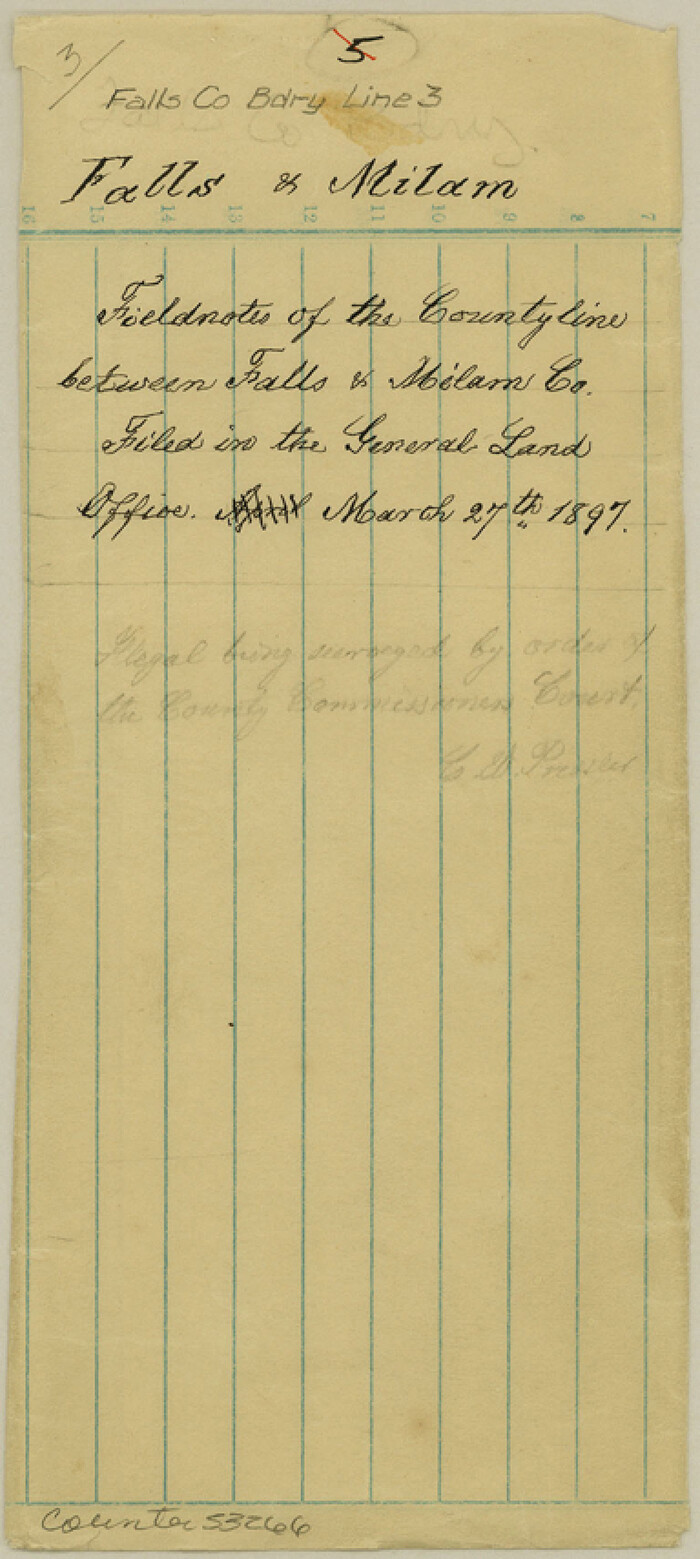 3/
5
Falls Co Bdry Line 3
Falls & Milam
16 15 14 13 12 11 10 9 8 7
Fieldnotes of the Countyline
between Falls & Milam Co.
Filed in the General Land
Office. March 27th 1897.
Illegal being surveyed by order of
the County Commissioners Court.
C. W. Pressler
Counter 53266